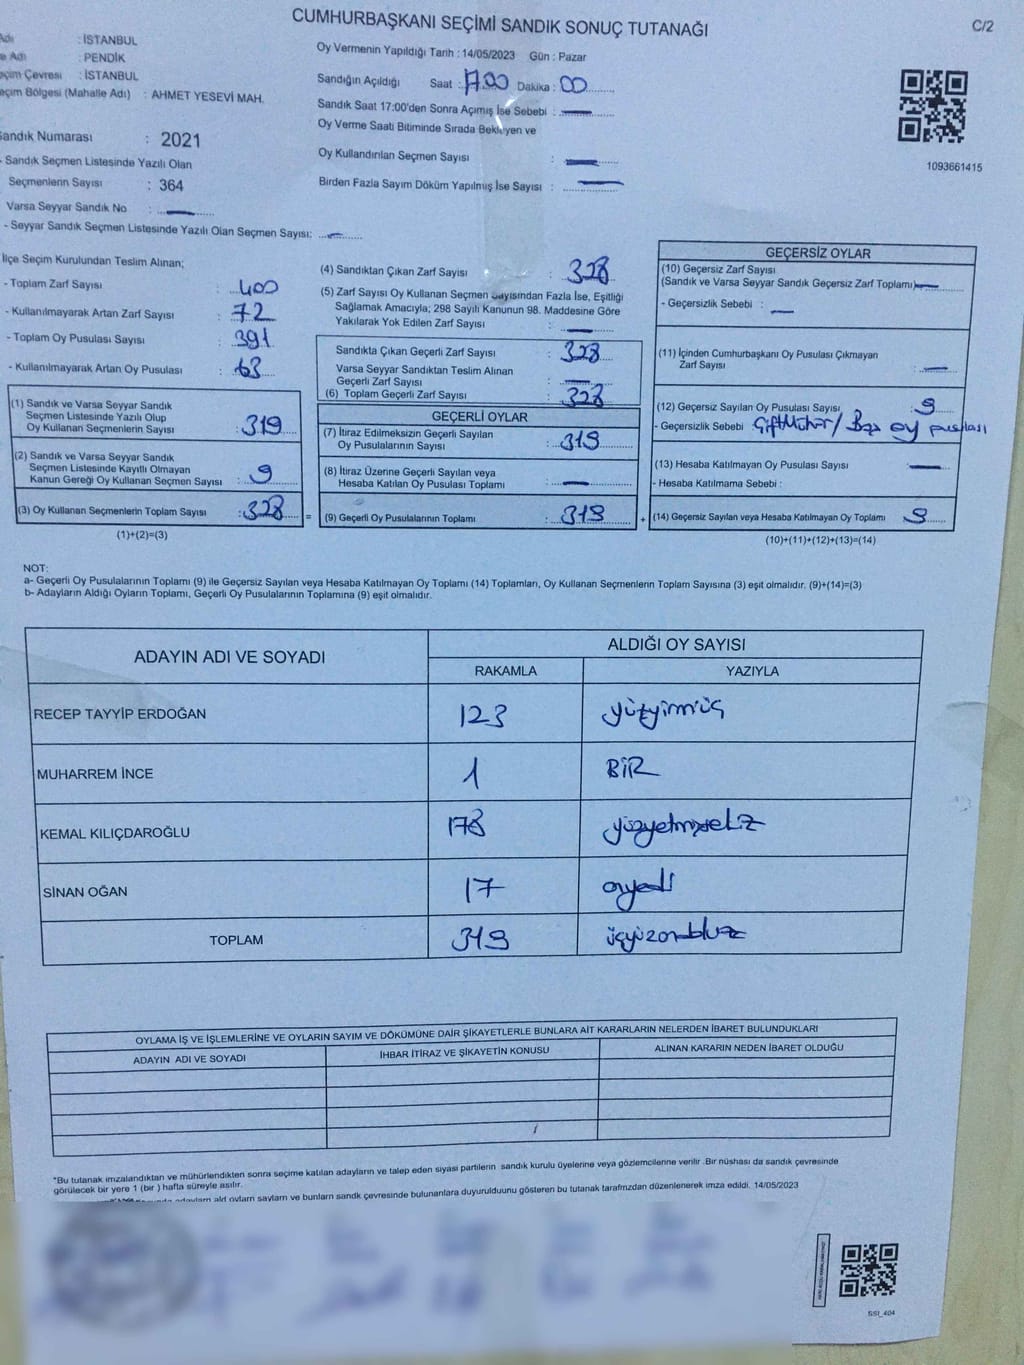 CUMHURBAŞKANI SEÇİMİ SANDIK SONUÇ TUTANAĞI
C/2
: İSTANBUL
Adı : PENDİK
Seçim Çevresi : İSTANBUL
Seçim Bölgesi (Mahalle Adı) : AHMET YESEVİ MAH.
Sandık Numarası : 2021
- Sandık Seçmen Listesinde Yazılı Olan
Seçmenlerin Sayısı : 364
Varsa Seyyar Sandık No : —
- Seyyar Sandık Seçmen Listesinde Yazılı Olan Seçmen Sayısı: —
Oy Vermenin Yapıldığı Tarih : 14/05/2023 Gün : Pazar
Sandığın Açıldığı Saat : 17.00 Dakika : 00
Sandık Saat 17:00'den Sonra Açılmış İse Sebebi : —
Oy Verme Saati Bitiminde Sırada Bekleyen ve
Oy Kullandırılan Seçmen Sayısı : —
Birden Fazla Sayım Döküm Yapılmış İse Sayısı : —
1093661415
İlçe Seçim Kurulundan Teslim Alınan;
- Toplam Zarf Sayısı : 400
- Kullanılmayarak Artan Zarf Sayısı : 72
- Toplam Oy Pusulası Sayısı : 391
- Kullanılmayarak Artan Oy Pusulası : 63
(1) Sandık ve Varsa Seyyar Sandık
Seçmen Listesinde Yazılı Olup
Oy Kullanan Seçmenlerin Sayısı : 319
(2) Sandık ve Varsa Seyyar Sandık
Seçmen Listesinde Kayıtlı Olmayan
Kanun Gereği Oy Kullanan Seçmen Sayısı : 9
(3) Oy Kullanan Seçmenlerin Toplam Sayısı : 328
(1)+(2)=(3)
(4) Sandıktan Çıkan Zarf Sayısı : 328
(5) Zarf Sayısı Oy Kullanan Seçmen Sayısından Fazla İse, Eşitliği
Sağlamak Amacıyla; 298 Sayılı Kanunun 98. Maddesine Göre
Yakılarak Yok Edilen Zarf Sayısı : —
Sandıkta Çıkan Geçerli Zarf Sayısı : 328
Varsa Seyyar Sandıktan Teslim Alınan
Geçerli Zarf Sayısı : —
(6) Toplam Geçerli Zarf Sayısı : 328
GEÇERLİ OYLAR
(7) İtiraz Edilmeksizin Geçerli Sayılan
Oy Pusulalarının Sayısı : 319
(8) İtiraz Üzerine Geçerli Sayılan veya
Hesaba Katılan Oy Pusulası Toplamı : —
= (9) Geçerli Oy Pusulalarının Toplamı : 319 +
GEÇERSİZ OYLAR
(10) Geçersiz Zarf Sayısı
(Sandık ve Varsa Seyyar Sandık Geçersiz Zarf Toplamı) —
- Geçersizlik Sebebi : —
(11) İçinden Cumhurbaşkanı Oy Pusulası Çıkmayan
Zarf Sayısı : —
(12) Geçersiz Sayılan Oy Pusulası Sayısı : 9
- Geçersizlik Sebebi Çift Mühür / Boş oy pusulası
(13) Hesaba Katılmayan Oy Pusulası Sayısı : —
- Hesaba Katılmama Sebebi :
(14) Geçersiz Sayılan veya Hesaba Katılmayan Oy Toplamı : 9
(10)+(11)+(12)+(13)=(14)
NOT:
a- Geçerli Oy Pusulalarının Toplamı (9) ile Geçersiz Sayılan veya Hesaba Katılmayan Oy Toplamı (14) Toplamları, Oy Kullanan Seçmenlerin Toplam Sayısına (3) eşit olmalıdır. (9)+(14)=(3)
b- Adayların Aldığı Oyların Toplamı, Geçerli Oy Pusulalarının Toplamına (9) eşit olmalıdır.
ADAYIN ADI VE SOYADI ALDIĞI OY SAYISI
RAKAMLA YAZIYLA
RECEP TAYYİP ERDOĞAN 123 yüzyirmiüç
MUHARREM İNCE 1 BİR
KEMAL KILIÇDAROĞLU 178 yüzyetmişsekiz
SİNAN OĞAN 17 onyedi
TOPLAM 319 üçyüzondokuz
OYLAMA İŞ VE İŞLEMLERİNE VE OYLARIN SAYIM VE DÖKÜMÜNE DAİR ŞİKAYETLERLE BUNLARA AİT KARARLARIN NELERDEN İBARET BULUNDUKLARI
ADAYIN ADI VE SOYADI İHBAR İTİRAZ VE ŞİKAYETİN KONUSU ALINAN KARARIN NEDEN İBARET OLDUĞU
*Bu tutanak imzalandıktan ve mühürlendikten sonra seçime katılan adayların ve talep eden siyasi partilerin sandık kurulu üyelerine veya gözlemcilerine verilir .Bir nüshası da sandık çevresinde
görülecek bir yere 1 (bir ) hafta süreyle asılır.
adayların ald oyların sayların ve bunların sandk çevresinde bulunanlara duyurulduunu gösteren bu tutanak tarafmzdan düzenlenerek imza edildi. 14/05/2023
SSI_404